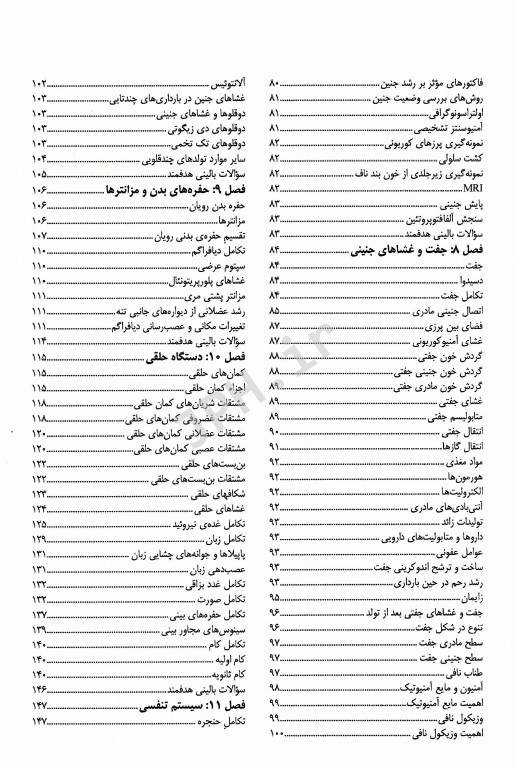 فاکتورهای مؤثر بر رشد جنین ........ ۸۰
روش‌های بررسی وضعیت جنین ........ ۸۱
اولتراسونوگرافی ........ ۸۱
آمنیوسنتز تشخیصی ........ ۸۱
نمونه‌گیری پرزهای کوریونی ........ ۸۲
کشت سلولی ........ ۸۲
نمونه‌گیری زیرجلدی از خون بند ناف ........ ۸۲
MRI ........ ۸۲
پایش جنینی ........ ۸۳
سنجش آلفافتوپروتئین ........ ۸۳
سؤالات بالینی هدفمند ........ ۸۳
فصل ۸: جفت و غشاهای جنینی ........ ۸۴
جفت ........ ۸۴
دسیدوا ........ ۸۴
تکامل جفت ........ ۸۴
اتصال جنینی مادری ........ ۸۵
فضای بین پرزی ........ ۸۷
غشای آمنیوکوریونی ........ ۸۷
گردش خون جفتی ........ ۸۸
گردش خون جنینی جفتی ........ ۸۸
گردش خون مادری جفتی ........ ۸۹
غشای جفتی ........ ۸۹
متابولیسم جفتی ........ ۸۹
انتقال جفتی ........ ۹۰
انتقال گازها ........ ۹۱
مواد مغذی ........ ۹۲
هورمون‌ها ........ ۹۲
الکترولیت‌ها ........ ۹۲
آنتی‌بادی‌های مادری ........ ۹۲
تولیدات زائد ........ ۹۳
داروها و متابولیت‌های دارویی ........ ۹۳
عوامل عفونی ........ ۹۳
ساخت و ترشح اندوکرینی جفت ........ ۹۳
رشد رحم در حین بارداری ........ ۹۳
زایمان ........ ۹۵
جفت و غشاهای جفتی بعد از تولد ........ ۹۶
تنوع در شکل جفت ........ ۹۶
سطح مادری جفت ........ ۹۷
سطح جنینی جفت ........ ۹۷
طناب نافی ........ ۹۷
آمنیون و مایع آمنیوتیک ........ ۹۸
اهمیت مایع آمنیوتیک ........ ۹۹
وزیکول نافی ........ ۹۹
اهمیت وزیکول نافی ........ ۱۰۰
آلانتوئیس ........ ۱۰۲
غشاهای جنین در بارداری‌های چندتایی ........ ۱۰۳
دوقلوها و غشاهای جنینی ........ ۱۰۳
دوقلوهای دی زیگوتی ........ ۱۰۳
دوقلوهای تک تخمی ........ ۱۰۳
سایر موارد تولدهای چندقلویی ........ ۱۰۴
سؤالات بالینی هدفمند ........ ۱۰۵
فصل ۹: حفره‌های بدن و مزانترها ........ ۱۰۶
حفره بدن رویان ........ ۱۰۶
مزانترها ........ ۱۰۶
تقسیم حفره‌ی بدنی رویان ........ ۱۰۷
تکامل دیافراگم ........ ۱۱۰
سپتوم عرضی ........ ۱۱۰
غشاهای پلورپریتونئال ........ ۱۱۰
مزانتر پشتی مری ........ ۱۱۱
رشد عضلانی از دیواره‌های جانبی تنه ........ ۱۱۱
تغییرات مکانی و عصب‌رسانی دیافراگم ........ ۱۱۱
سؤالات بالینی هدفمند ........ ۱۱۴
فصل ۱۰: دستگاه حلقی ........ ۱۱۵
کمان‌های حلقی ........ ۱۱۵
اجزاء کمان حلقی ........ ۱۱۵
مشتقات شریان‌های کمان حلقی ........ ۱۱۸
مشتقات غضروفی کمان‌های حلقی ........ ۱۱۸
مشتقات عضلانی کمان‌های حلقی ........ ۱۲۰
مشتقات عصبی کمان‌های حلقی ........ ۱۲۰
بن‌بست‌های حلقی ........ ۱۲۲
مشتقات بن‌بست‌های حلقی ........ ۱۲۲
شکافهای حلقی ........ ۱۲۳
غشاهای حلقی ........ ۱۲۴
تکامل غده‌ی تیروئید ........ ۱۲۵
تکامل زبان ........ ۱۲۹
پاپیلاها و جوانه‌های چشایی زبان ........ ۱۳۱
عصب‌دهی زبان ........ ۱۳۱
تکامل غدد بزاقی ........ ۱۳۲
تکامل صورت ........ ۱۳۲
تکامل حفره‌های بینی ........ ۱۳۷
سینوس‌های مجاور بینی ........ ۱۳۹
تکامل کام ........ ۱۴۰
کام اولیه ........ ۱۴۰
کام ثانویه ........ ۱۴۰
سؤالات بالینی هدفمند ........ ۱۴۶
فصل ۱۱: سیستم تنفسی ........ ۱۴۷
تکامل حنجره ........ ۱۴۷